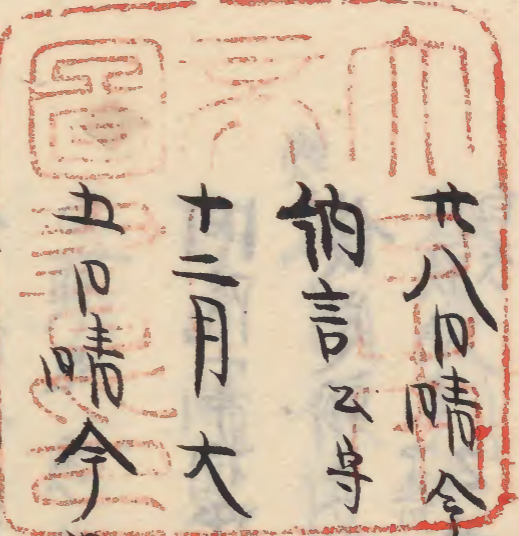 廿八日晴今
納言公守
十二月大
五日晴今